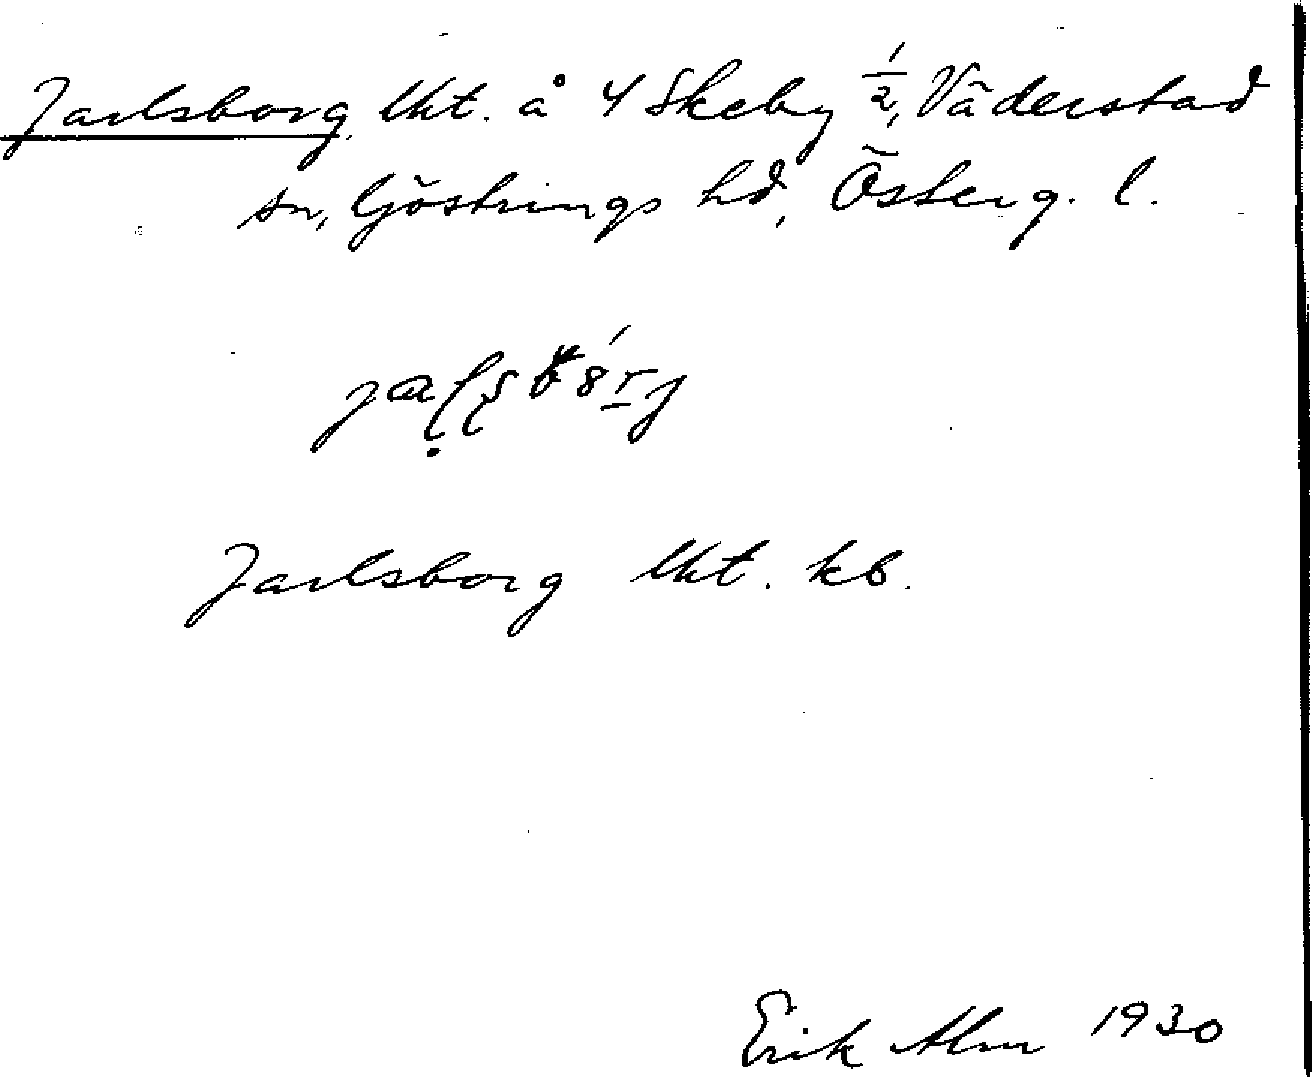 Jarlsborg, lht. å 4 Skeby 1/2, Väderstad
sn, Göstrings hd, Österg. l.
Jarlsborg lht. kb.
Erik Alm 1930